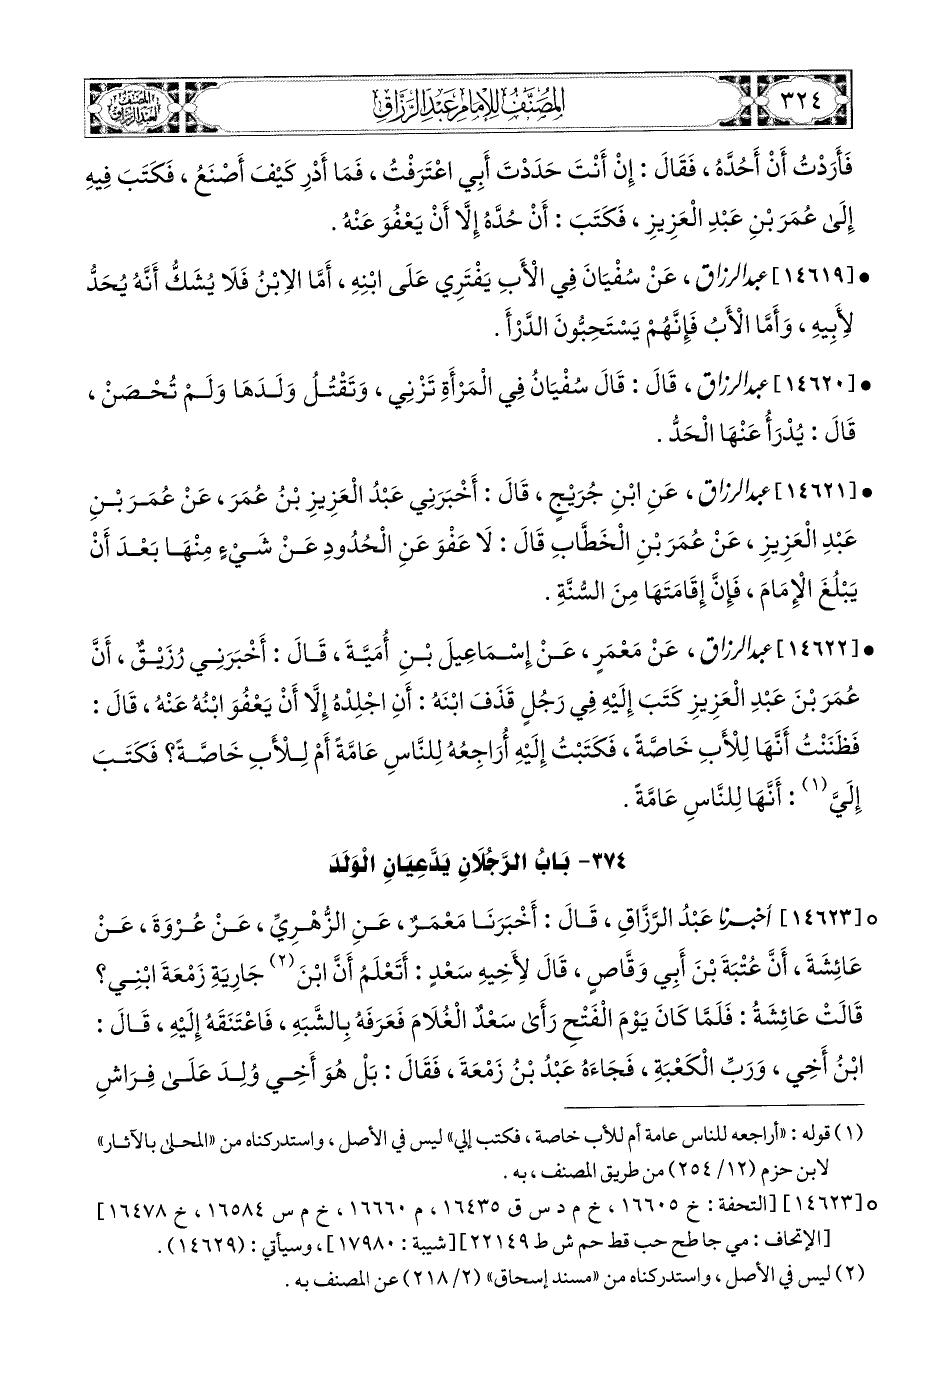 ٣٢٤
المصنف للإمام عبد الرزاق
المصنف
لعبد الرزاق
فَأَرَدْتُ أَنْ أَحُدَّهُ ، فَقَالَ : إِنْ أَنْتَ حَدَدْتَ أَبِي اعْتَرَفْتُ ، فَمَا أَدْرِ كَيْفَ أَصْنَعُ ، فَكَتَبَ فِيهِ
إِلَى عُمَرَ بْنِ عَبْدِ الْعَزِيزِ ، فَكَتَبَ : أَنْ حُدَّهُ إِلَّا أَنْ يَعْفُوَ عَنْهُ .
• [١٤٦١٩] عبد الرزاق ، عَنْ سُفْيَانَ فِي الْأَبِ يَفْتَرِي عَلَى ابْنِهِ ، أَمَّا الِابْنُ فَلَا يُشَكُّ أَنَّهُ يُحَدُّ
لِأَبِيهِ ، وَأَمَّا الْأَبُ فَإِنَّهُمْ يَسْتَحِبُّونَ الدَّرْأَ .
• [١٤٦٢٠] عبد الرزاق ، قَالَ : قَالَ سُفْيَانُ فِي الْمَرْأَةِ تَزْنِي ، وَتَقْتُلُ وَلَدَهَا وَلَمْ تُحْصَنْ ،
قَالَ : يُدْرَأُ عَنْهَا الْحَدُّ .
• [١٤٦٢١] عبد الرزاق ، عَنِ ابْنِ جُرَيْجٍ ، قَالَ : أَخْبَرَنِي عَبْدُ الْعَزِيزِ بْنُ عُمَرَ ، عَنْ عُمَرَ بْنِ
عَبْدِ الْعَزِيزِ ، عَنْ عُمَرَ بْنِ الْخَطَّابِ قَالَ : لَا عَفْوَ عَنِ الْحُدُودِ عَنْ شَيْءٍ مِنْهَا بَعْدَ أَنْ
يَبْلُغَ الْإِمَامَ ، فَإِنَّ إِقَامَتَهَا مِنَ السُّنَّةِ .
• [١٤٦٢٢] عبد الرزاق ، عَنْ مَعْمَرٍ ، عَنْ إِسْمَاعِيلَ بْنِ أُمَيَّةَ ، قَالَ : أَخْبَرَنِي رُزَيْقٌ ، أَنَّ
عُمَرَ بْنَ عَبْدِ الْعَزِيزِ كَتَبَ إِلَيْهِ فِي رَجُلٍ قَذَفَ ابْنَهُ : أَنِ اجْلِدْهُ إِلَّا أَنْ يَعْفُوَ ابْنُهُ عَنْهُ ، قَالَ :
فَظَنَنْتُ أَنَّهَا لِلْأَبِ خَاصَّةً ، فَكَتَبْتُ إِلَيْهِ أُرَاجِعُهُ لِلنَّاسِ عَامَّةً أَمْ لِلْأَبِ خَاصَّةً؟ فَكَتَبَ
إِلَيَّ (١) : أَنَّهَا لِلنَّاسِ عَامَّةً .
٣٧٤- بَابُ الرَّجُلَانِ يَدَّعِيَانِ الْوَلَدَ
o [١٤٦٢٣] أخبرنا عَبْدُ الرَّزَّاقِ ، قَالَ : أَخْبَرَنَا مَعْمَرٌ ، عَنِ الزُّهْرِيِّ ، عَنْ عُرْوَةَ ، عَنْ
عَائِشَةَ ، أَنَّ عُتْبَةَ بْنَ أَبِي وَقَّاصٍ ، قَالَ لِأَخِيهِ سَعْدٍ : أَتَعْلَمُ أَنَّ ابْنَ (٢) جَارِيَةِ زَمْعَةَ ابْنِي؟
قَالَتْ عَائِشَةُ : فَلَمَّا كَانَ يَوْمَ الْفَتْحِ رَأَى سَعْدٌ الْغُلَامَ فَعَرَفَهُ بِالشَّبَهِ ، فَاعْتَنَقَهُ إِلَيْهِ ، قَالَ :
ابْنُ أَخِي ، وَرَبِّ الْكَعْبَةِ ، فَجَاءَهُ عَبْدُ بْنُ زَمْعَةَ ، فَقَالَ : بَلْ هُوَ أَخِي وُلِدَ عَلَى فِرَاشِ
(١) قوله : «أراجعه للناس عامة أم للأب خاصة ، فكتب إلي» ليس في الأصل ، واستدركناه من «المحلى بالآثار»
لابن حزم (١٢/ ٢٥٤) من طريق المصنف ، به .
o [١٤٦٢٣] [التحفة : خ ١٦٦٠٥ ، خ م د س ق ١٦٤٣٥ ، م ١٦٦٦٠ ، خ م س ١٦٥٨٤ ، خ ١٦٤٧٨]
[الإتحاف : مي جا طح حب قط حم ش ط ٢٢١٤٩] [شيبة : ١٧٩٨٠] ، وسيأتي : (١٤٦٢٩) .
(٢) ليس في الأصل ، واستدركناه من «مسند إسحاق» (٢/ ٢١٨) عن المصنف به .